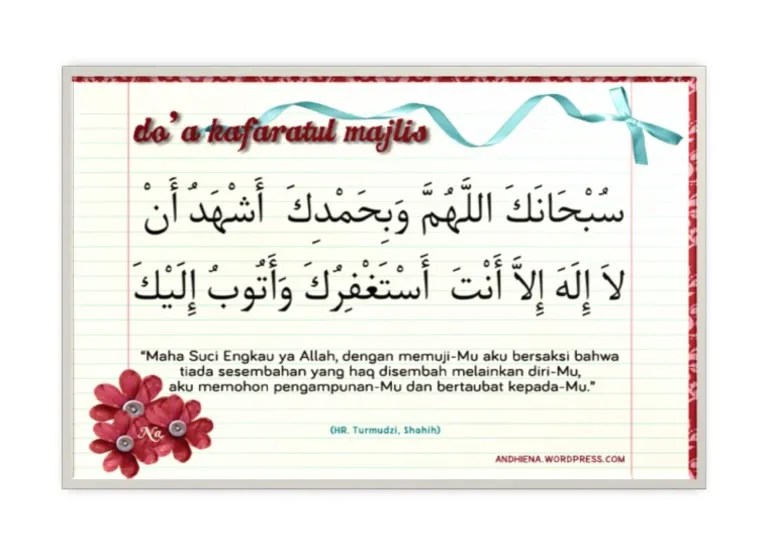 do'a kafaratul majlis
سُبْحَانَكَ اللَّهُمَّ وَبِحَمْدِكَ أَشْهَدُ أَنْ
لاَ إِلَهَ إِلاَّ أَنْتَ أَسْتَغْفِرُكَ وَأَتُوبُ إِلَيْكَ
"Maha Suci Engkau ya Allah, dengan memuji-Mu aku bersaksi bahwa
tiada sesembahan yang haq disembah melainkan diri-Mu,
aku memohon pengampunan-Mu dan bertaubat kepada-Mu."
(HR. Turmudzi, Shahih)
Na
ANDHIENA.WORDPRESS.COM